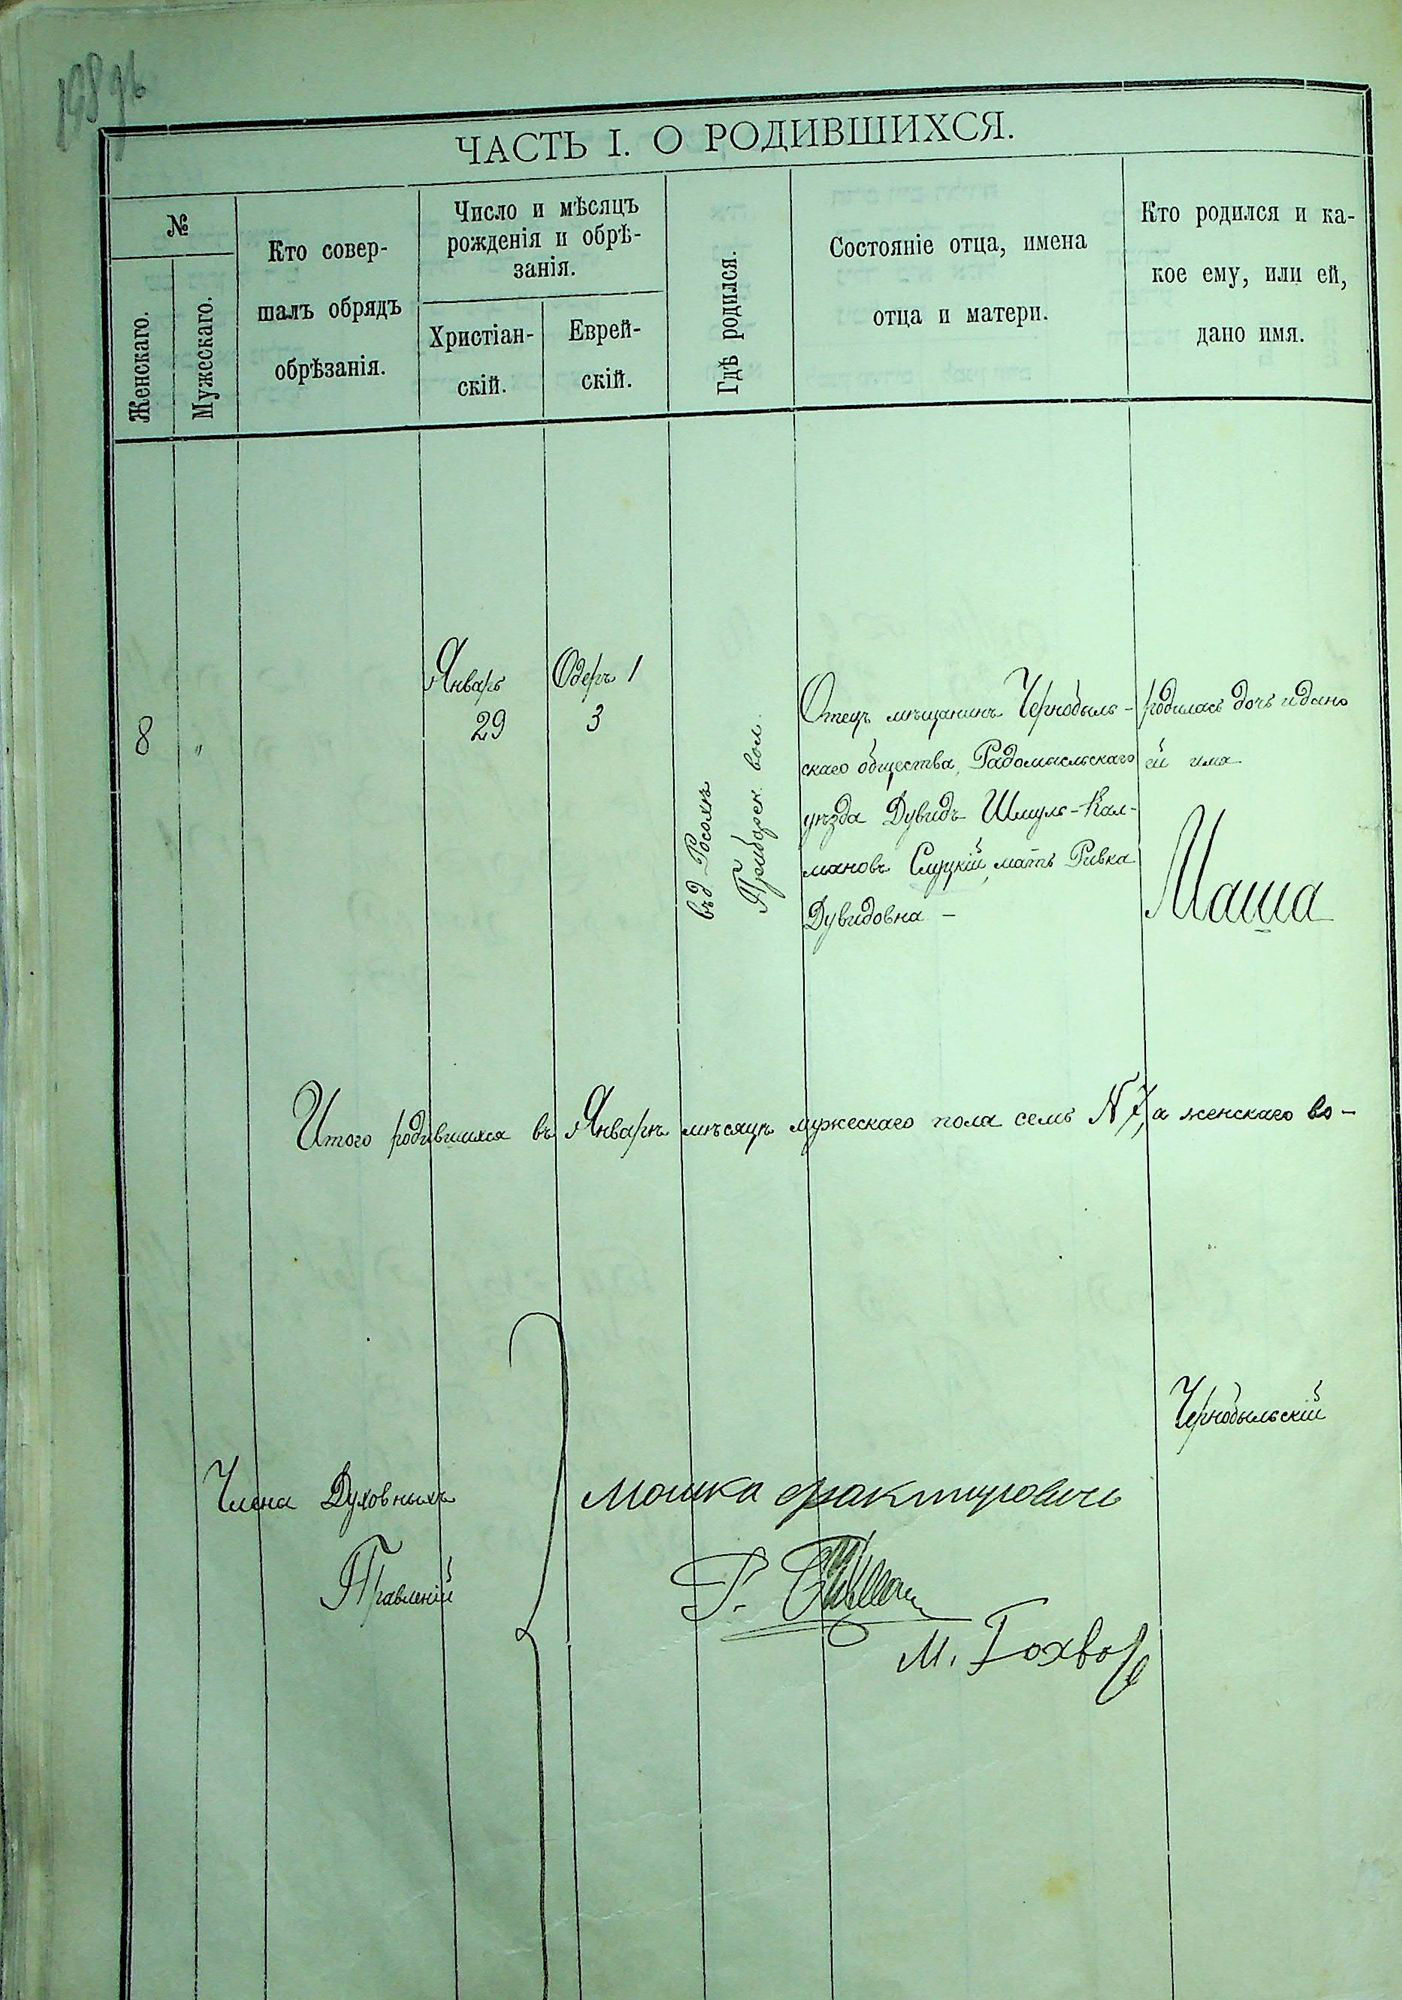 ЧАСТЬ I. О РОДИВШИХСЯ.
№
Женскаго.
Мужескаго.
Кто совер-
шалъ обрядъ
обрѣзанія.
Число и мѣсяцъ
рожденія и обрѣ-
занія.
Христіан-
скій.
Еврей-
скій.
Гдѣ родился.
Состояніе отца, имена
отца и матери.
Кто родился и ка-
кое ему, или ей,
дано имя.
8
"
Январь
29
Одеръ 1
3
въ д. Росохѣ
Приборск. вол.
Отецъ мѣщанинъ Чернобыль-
скаго общества, Радомысльскаго
уѣзда Дувидъ Шмуль-Кал-
мановъ Слуцкій, мать Ривка
Дувидовна —
родилась дочь и дано
ей имя
Маша
Итого родившихся въ Январѣ мѣсяцѣ мужескаго пола семь № 7, а женскаго во-
Чернобыльскій
Члена Духовныхъ
Правленій
Мошка Фрактурович
Г.
М. Гохвог